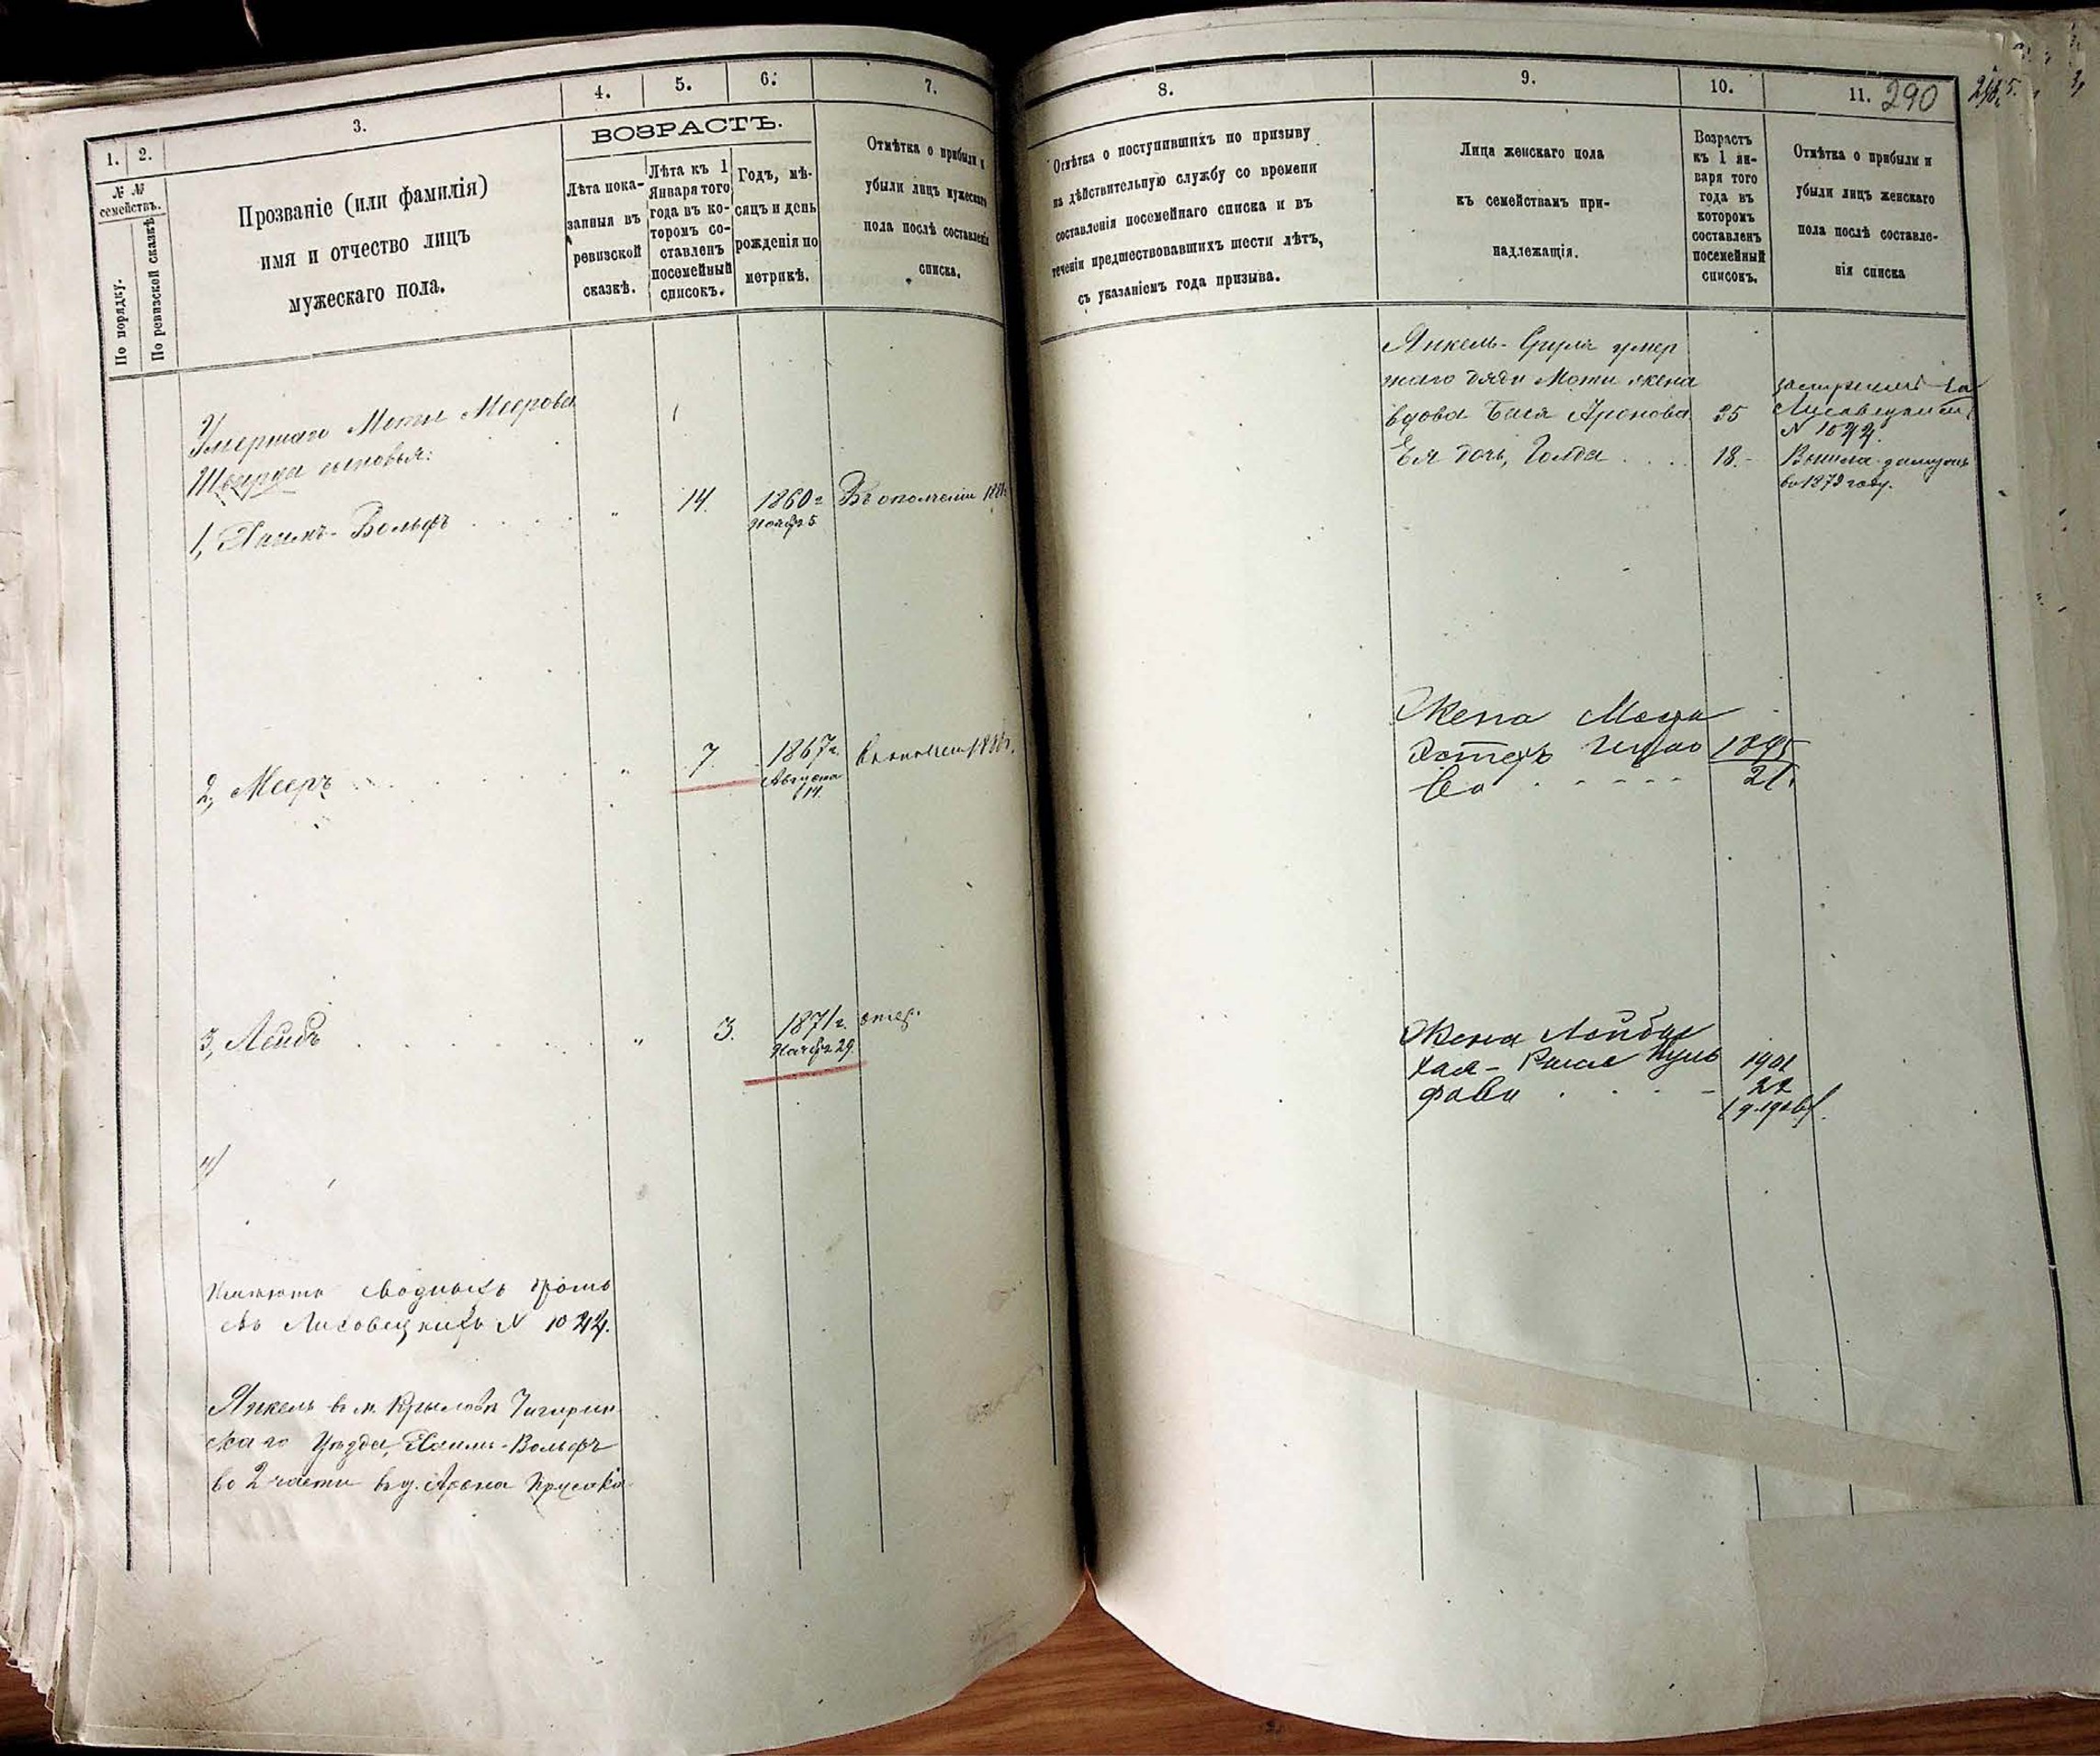 1.
2.
3.
4.
5.
6.
7.
№ №
семействъ.
По порядку.
По ревизской сказкѣ
Прозваніе (или фамилія)
имя и отчество лицъ
мужескаго пола.
ВОЗРАСТЪ.
Лѣта пока-
занныя въ
ревизской
сказкѣ.
Лѣта къ 1
Января того
года въ ко-
торомъ со-
ставленъ
посемейный
списокъ.
Годъ, мѣ-
сяцъ и день
рожденія по
метрикѣ.
Отмѣтка о прибыли и
убыли лицъ мужескаго
пола послѣ составленія
списка.
Умершаго Моти Меерова
сыновья:
1, Хаимъ-Вольфъ
"
14.
1860 г.
Ноябр. 5
Въ ополченіи
2, Мееръ
"
7.
1867 г.
Августа
14.
3, Лейбъ
"
3.
1871 г.
Ноябр. 29.
4/
сводныхъ
Лисовецкихъ N 1044.
Янкель в м. Крыловѣ Чигирин
скаго Уѣзда, Хаимъ-Вольфъ
во 2 части в д. Арона
8.
9.
10.
11.
290
Отмѣтка о поступившихъ по призыву
на дѣйствительную службу со времени
составленія посемейнаго списка и въ
теченіи предшествовавшихъ шести лѣтъ,
съ указаніемъ года призыва.
Лица женскаго пола
къ семействамъ при-
надлежащія.
Возрастъ
къ 1 ян-
варя того
года въ
которомъ
составленъ
посемейный
списокъ.
Отмѣтка о прибыли и
убыли лицъ женскаго
пола послѣ составле-
нія списка
Янкель-Сруля умер
шаго дяди Моти жена
вдова Бася Аронова 35
N 1044.
Ея дочь, Голда 18.
Вышла замужъ
въ 1872 году.
Жена
1895
21.
Жена Лейбы
Хая-
1901
22